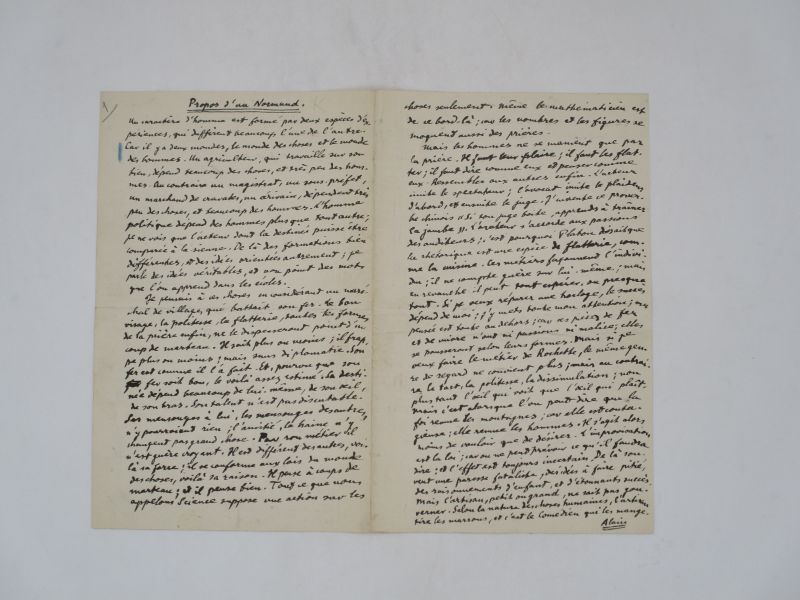 Propos d'un Normand.
Un caractère d'homme est formé par deux espèces d'ex
périences, qui diffèrent beaucoup l'une de l'autre.
Car il y a deux mondes, le monde des choses et le monde
des hommes. Un agriculteur, qui travaille sur son
bien, dépend beaucoup des choses, et très peu des hom-
mes. Au contraire un magistrat, un sous-préfet,
un marchand de cravates, un écrivain, dépendent très
peu des choses, et beaucoup des hommes. L'homme
politique dépend des hommes plus que tout autre;
je ne vois que l'acteur dont la destinée puisse être
comparée à la sienne. De là des formations bien
différentes, et des idées orientées autrement; je
parle des idées véritables, et non point des mots
que l'on apprend dans les écoles.
Je pensais à ces choses en considérant un maré-
chal de village, qui battait son fer. Le bon
visage, la politesse, la flatterie, toutes les formes
de la prière enfin, ne le dispenseront point d'un
coup de marteau. Il sait plus ou moins; il frap
pe plus ou moins; mais sans diplomatie. Son
fer est comme il l'a fait. Et, pourvu que son
fer soit bon, le voilà assez estimé. Sa desti-
née dépend beaucoup de lui-même, de son œil,
de son bras. Son talent n'est pas discutable.
Ses mensonges à lui, les mensonges des autres,
n'y pourraient rien; l'amitié, la haine n'y
changent pas grand chose. Par son métier il
n'est guère voyant. Il est différent des autres, voi-
là sa force; il se conforme aux lois du monde
des choses, voilà sa raison. Il pense à coups de
marteau; et il pense bien. Tout ce que nous
appelons Science suppose une action sur les
choses seulement. Même le mathématicien est
de ce bord-là; car les nombres et les figures se
moquent aussi des prières.
Mais les hommes ne se manient que par
la prière. Il faut leur plaire; il faut les flat-
ter; il faut dire comme eux et penser comme
eux. Ressembler aux autres enfin. L'acteur
imite le spectateur; l'avocat imite le plaideur
d'abord, et ensuite le juge. J'invente ce prover-
be chinois « Si ton juge boite, apprends à traîner
la jambe ». L'orateur s'accorde aux passions
des auditeurs; c'est pourquoi Platon disait que
la rhétorique est une espèce de flatterie, com-
me la cuisine. Les métiers façonnent l'indivi-
du; il ne compte guère sur lui-même; mais
en revanche il peut tout espérer, ou presque
tout. Si je veux réparer une horloge, le succès
dépend de moi; j'y mets toute mon attention; ma
pensée est toute au dehors; car ces pièces de fer
et de cuivre n'ont ni passions ni malice; elles
se pousseront selon leurs formes. Mais si je
veux faire le métier de Rochette, le même gen-
re de regard ne convient plus; mais au contrai-
re le tact, la politesse, la dissimulation; non
plus tant l'œil qui voit que l'œil qui plaît.
Mais c'est alors que l'on peut dire que la
foi remue les montagnes; car elle est conta-
gieuse; elle remue les hommes. Il s'agit alors
moins de vouloir que de désirer. L'improvisation
est la loi; car on ne peut prévoir ce qu'il faudra
dire; et l'effet est toujours incertain. De là sou-
vent une paresse fataliste, des idées à faire pitié,
des raisonnements d'enfant, et d'étonnants succès.
Mais l'artisan, petit ou grand, ne sait pas gou-
verner. Selon la nature des choses humaines, l'artisan
tire les marrons, et c'est le Comédien qui les mange.
Alain